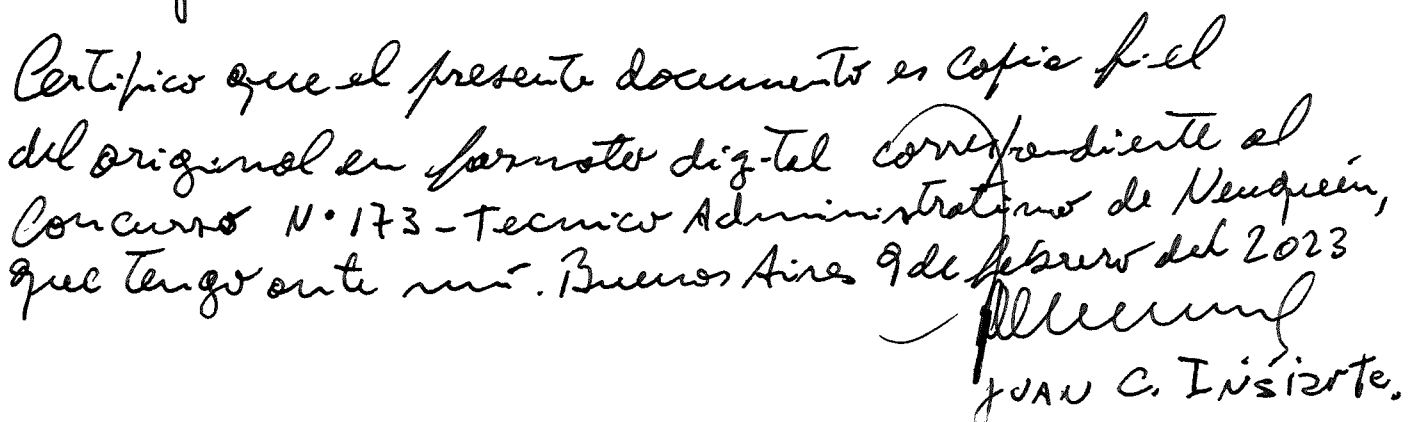 Certifico que el presente documento es copia fiel
del original en formato digital correspondiente al
Concurso N° 173 - Tecnico Administrativo de Neuquén,
que tengo ante mí. Buenos Aires 9 de febrero del 2023
JUAN C. Insiarte.